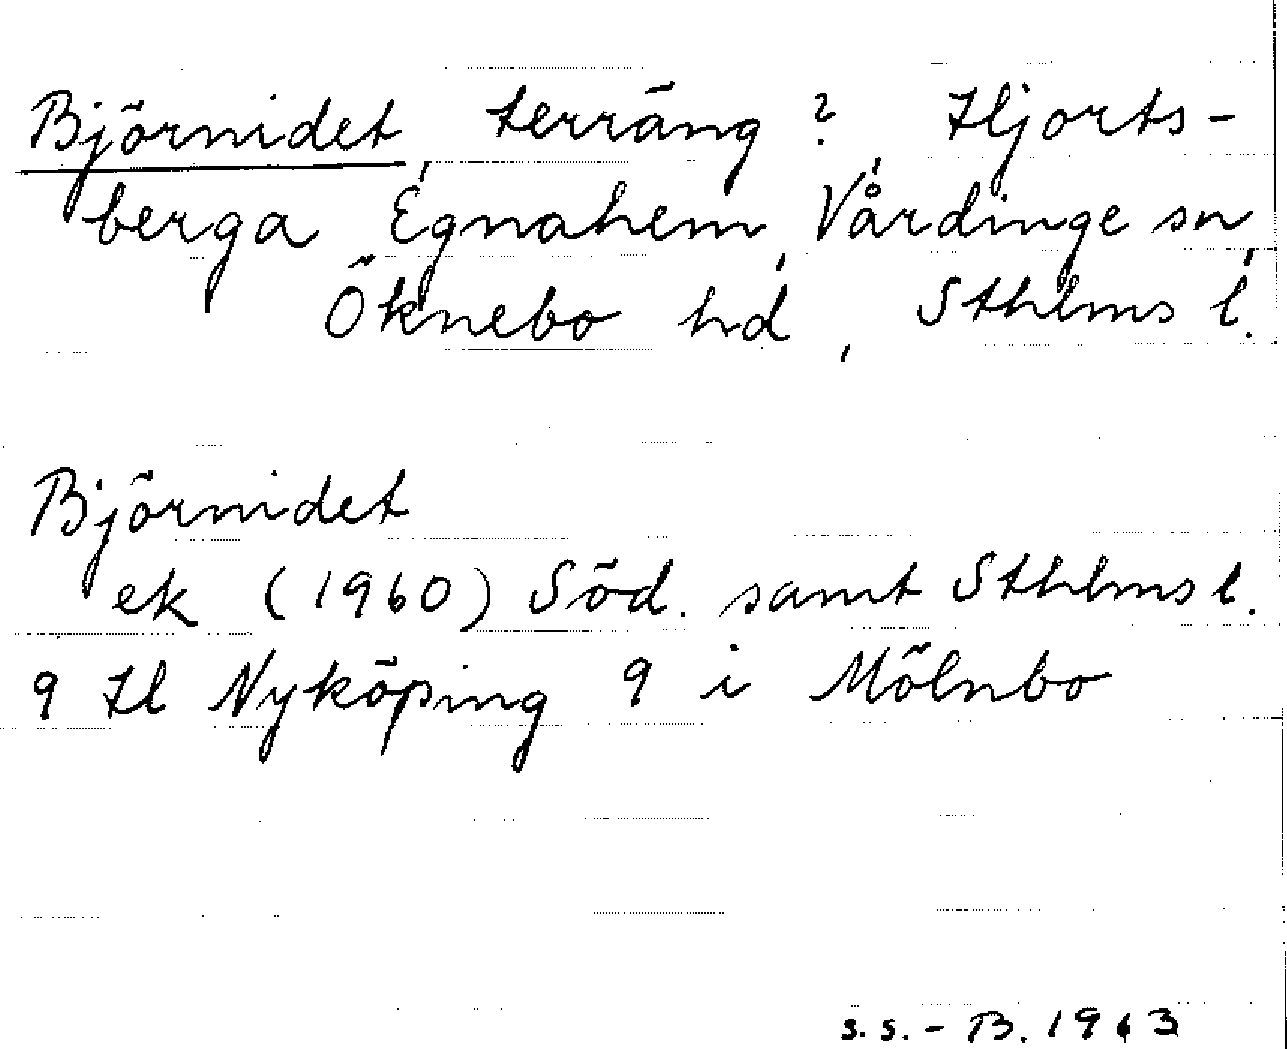 Björnidet, terräng?, Hjorts-
berga Egnahem, Vårdinge sn,
Öknebo hd, Sthlms l.
Björnidet
ek (1960) Söd. samt Sthlms l.
9 H l Nyköping 9 i Mölnbo
s.s. - B. 1963